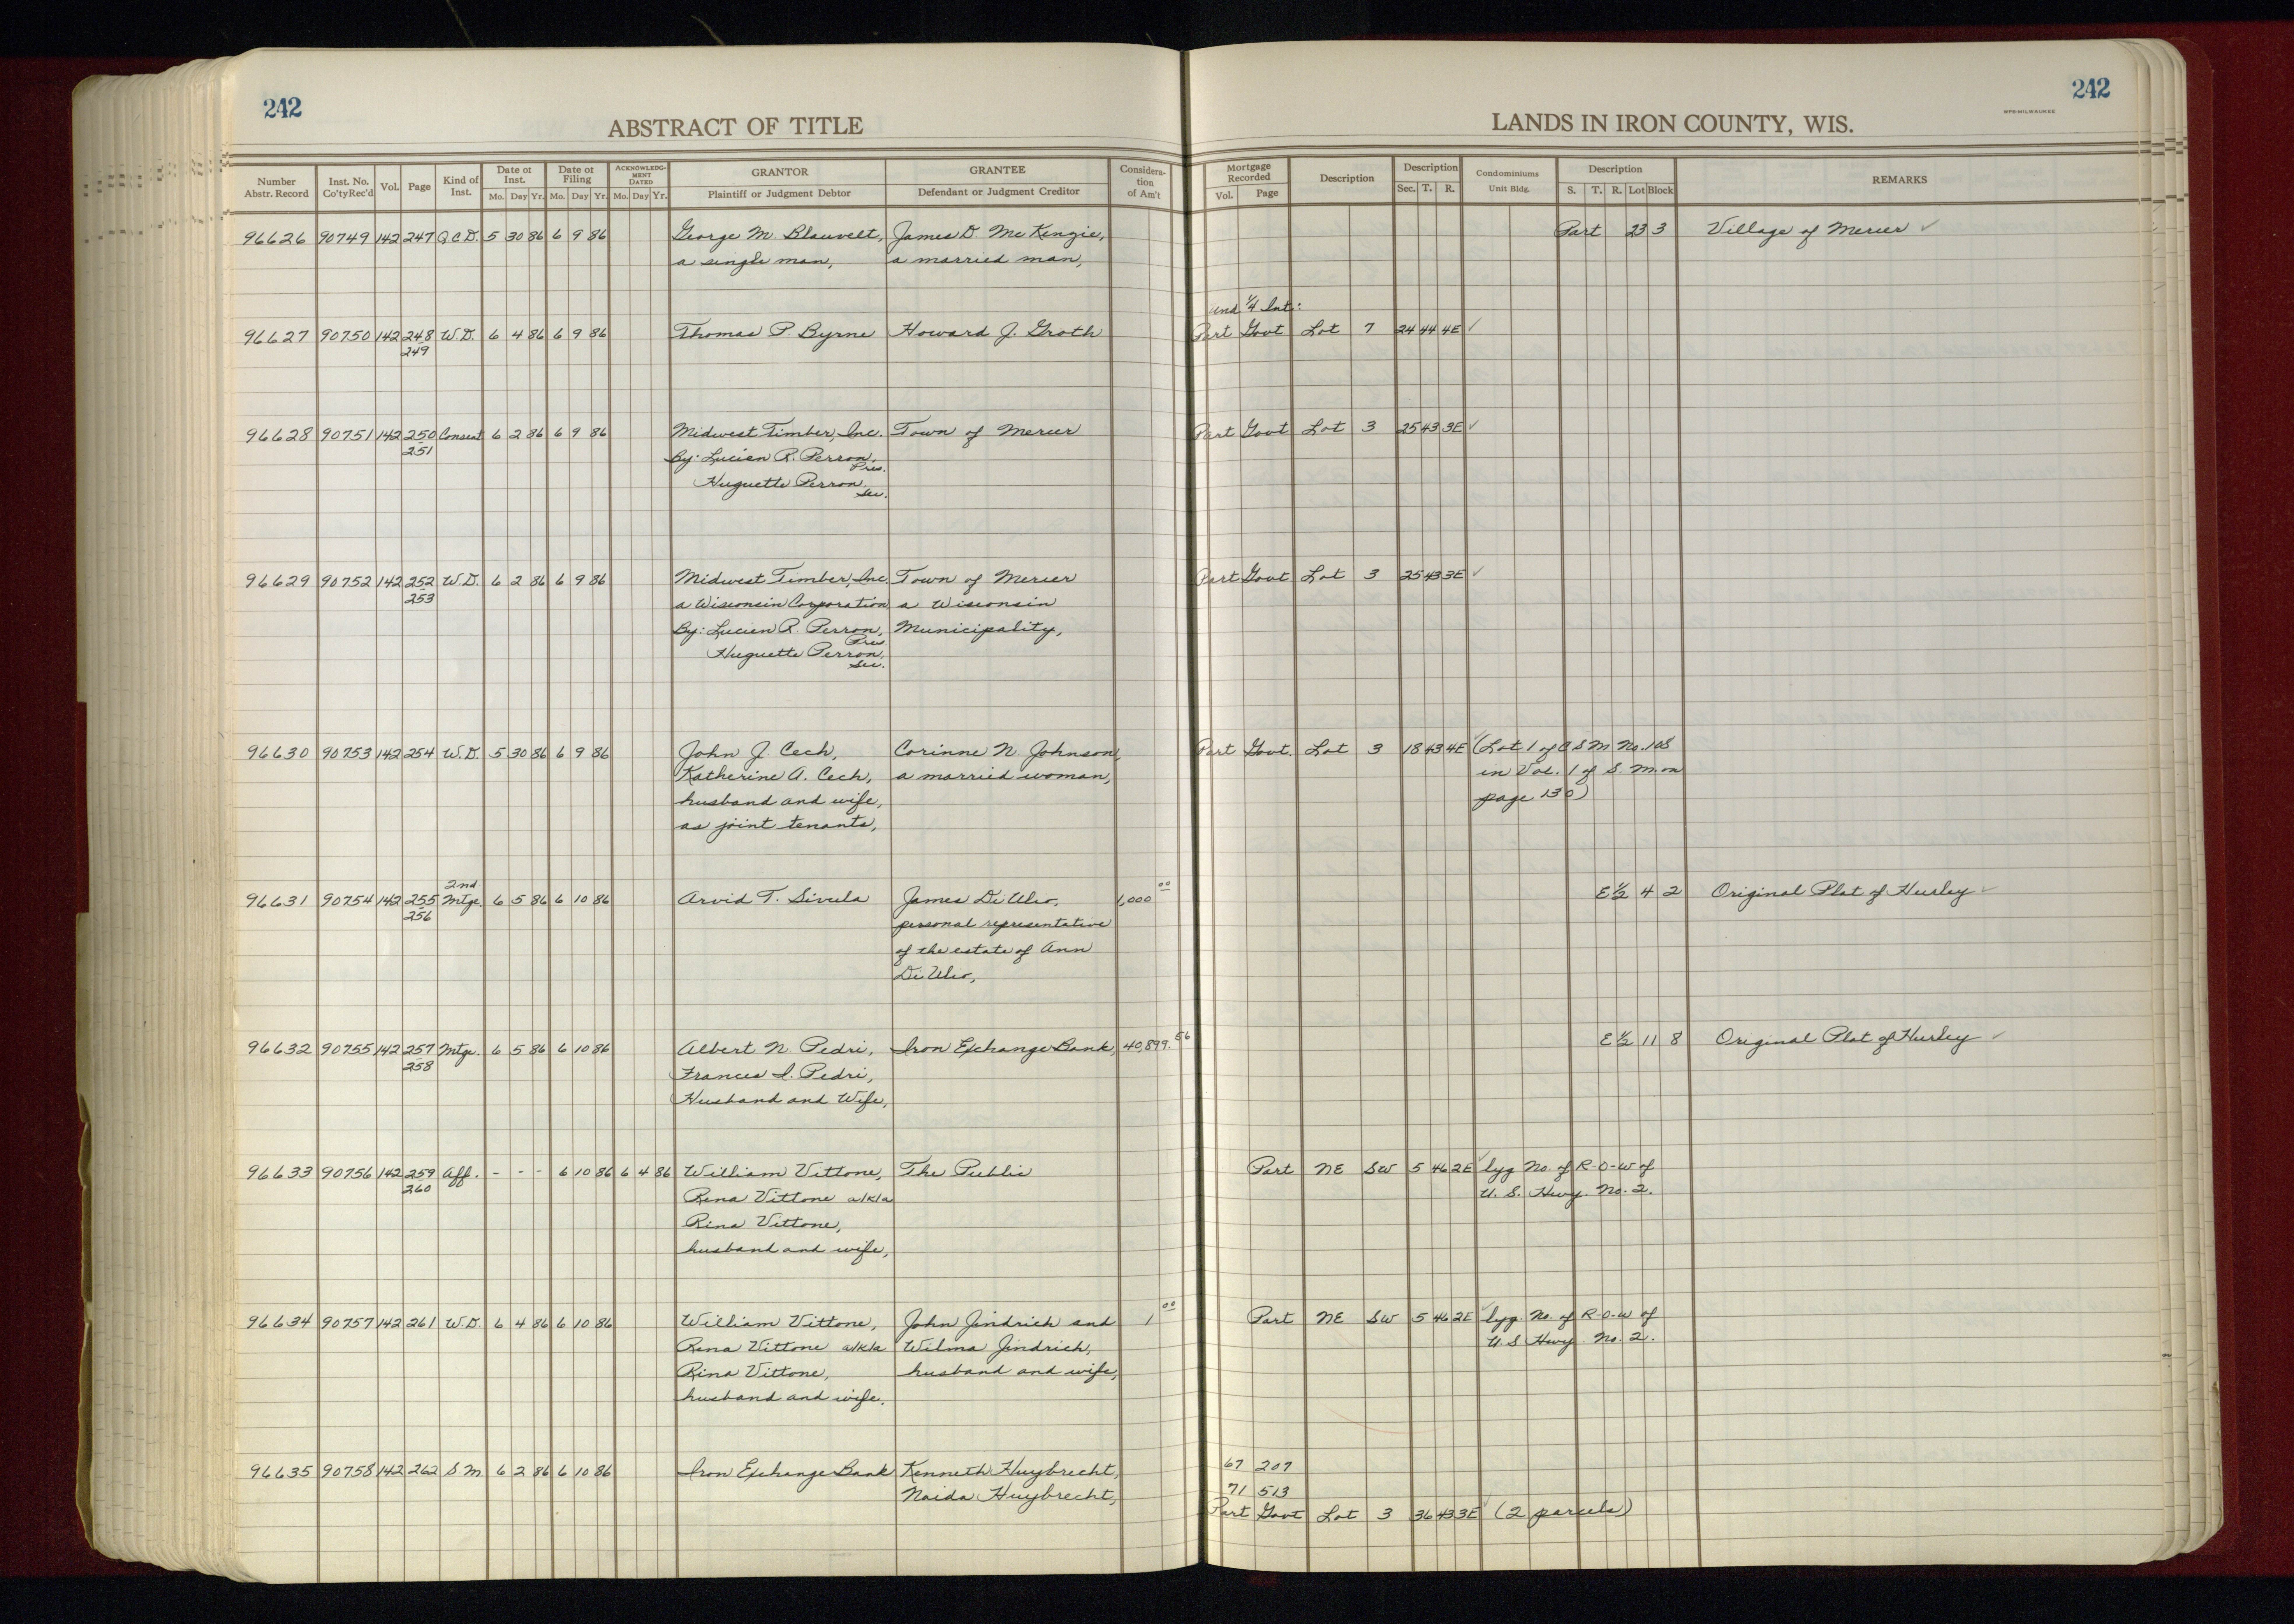 242
ABSTRACT OF TITLE
242
LANDS IN IRON COUNTY, WIS.
WPS-MILWAUKEE
Number Abstr. Record | Inst. No. Co'ty Rec'd | Vol. | Page | Kind of Inst. | Date of Inst. Mo. Day Yr. | Date of Filing Mo. Day Yr. | ACKNOWLEDGMENT DATED Mo. Day Yr. | GRANTOR Plaintiff or Judgment Debtor | GRANTEE Defendant or Judgment Creditor | Consideration of Am't | Mortgage Recorded Vol. Page | Description | Description Sec. T. R. | Condominiums Unit Bldg. | Description S. T. R. Lot Block | REMARKS
96626 90749 142 247 Q.C.D. 5 30 86 6 9 86 George M. Blauvelt, James D. McKenzie, Part 23 3 Village of Mercer ✓
a single man, a married man,
und 1/4 Int:
96627 90750 142 248 W.D. 6 4 86 6 9 86 Thomas P. Byrne Howard J. Groth Part Govt Lot 7 24 44 4E ✓
249
96628 90751 142 250 Consent 6 2 86 6 9 86 Midwest Timber, Inc. Town of Mercer Part Govt Lot 3 25 43 3E ✓
251 By: Lucien R. Perron, Pres.
Huguette Perron, Sec.
96629 90752 142 252 W.D. 6 2 86 6 9 86 Midwest Timber, Inc. Town of Mercer Part Govt Lot 3 25 43 3E ✓
253 a Wisconsin Corporation a Wisconsin
By: Lucien R. Perron, Pres. Municipality,
Huguette Perron, Sec.
96630 90753 142 254 W.D. 5 30 86 6 9 86 John J. Cech, Corinne N. Johnson, Part Govt. Lot 3 18 43 4E ✓ (Lot 1 of C S M No. 108
Katherine A. Cech, a married woman, in Vol. 1 of S. M. on
husband and wife, page 130)
as joint tenants,
2nd
96631 90754 142 255 Mtge. 6 5 86 6 10 86 Arvid T. Sivula James DiUlio, 1,000 00 E 1/2 4 2 Original Plat of Hurley ✓
256 personal representative
of the estate of Ann
DiUlio,
96632 90755 142 257 Mtge. 6 5 86 6 10 86 Albert N. Pedri, Iron Exchange Bank, 40,899.56 E 1/2 11 8 Original Plat of Hurley ✓
258 Frances I. Pedri,
Husband and Wife,
96633 90756 142 259 Aff. - - - 6 10 86 6 4 86 William Vittone, The Public Part NE SW 5 46 2E ✓ lyg No. of R-O-W of
260 Rena Vittone a/k/a U. S. Hwy. No. 2.
Rina Vittone,
husband and wife,
96634 90757 142 261 W.D. 6 4 86 6 10 86 William Vittone, John Jindrich and 1 00 Part NE SW 5 46 2E ✓ lyg. No. of R-O-W of
Rena Vittone a/k/a Wilma Jindrich, U. S Hwy. No. 2.
Rina Vittone, husband and wife,
husband and wife.
96635 90758 142 262 S M 6 2 86 6 10 86 Iron Exchange Bank Kenneth Huybrecht, 67 207
Naida Huybrecht, 71 513
Part Govt Lot 3 36 43 3E ✓ (2 parcels)